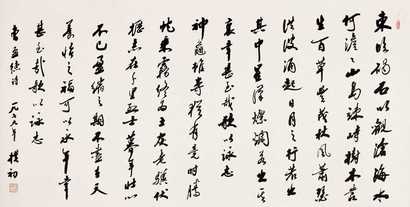 東臨碣石以觀滄海水
何澹澹山島竦峙樹木叢
生百草豐茂秋風蕭瑟
洪波涌起日月之行若出
其中星漢燦爛若出其
裏幸甚至哉歌以詠志
神龜雖壽猶有竟時騰
蛇乘霧終為土灰老驥伏
櫪志在千里烈士暮年壯心
不已盈縮之期不在天
養怡之福可以永年幸
甚至哉歌以詠志
曹孟德詩 一九年 樸初